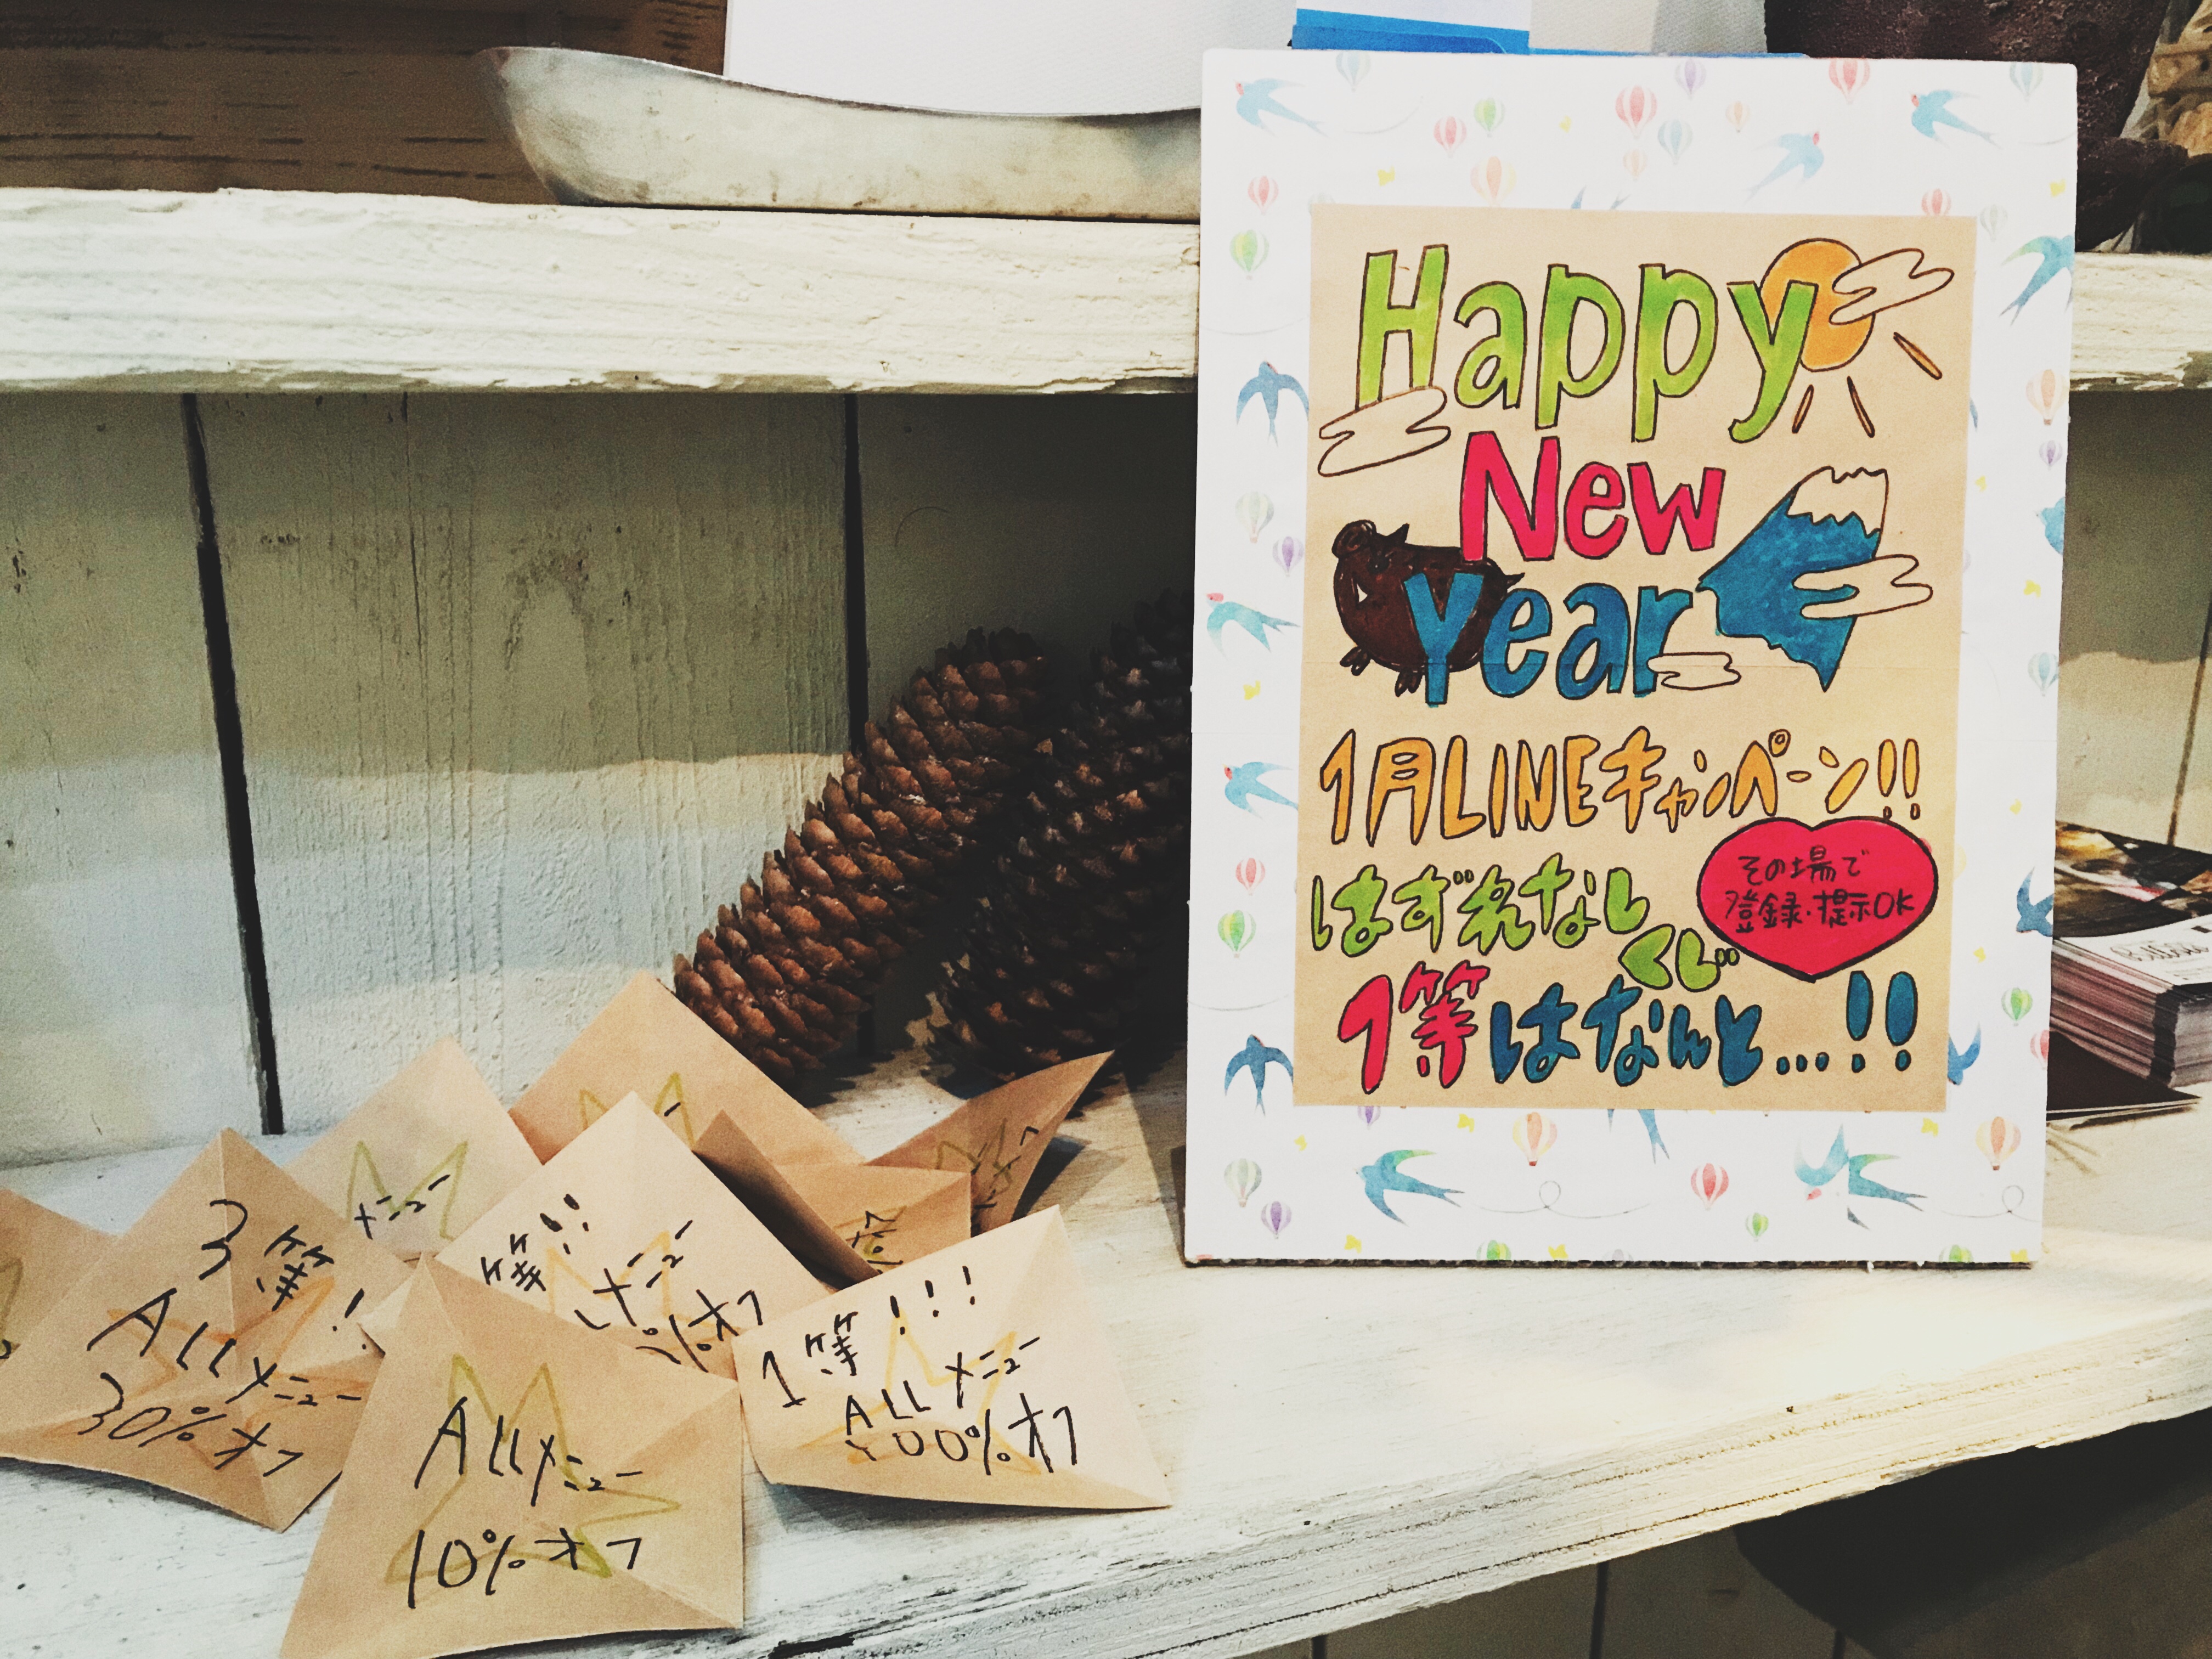 Happy
New
Year
1月LINEキャンペーン!!
はずれなし
くじ
その場で
登録・提示OK
1等はなんと...!!
3等!
ALLメニュー
30%オフ
メニュー
等!!
メニュー
%オフ
1等!!!
ALLメニュー
100%オフ
ALLメニュー
10%オフ